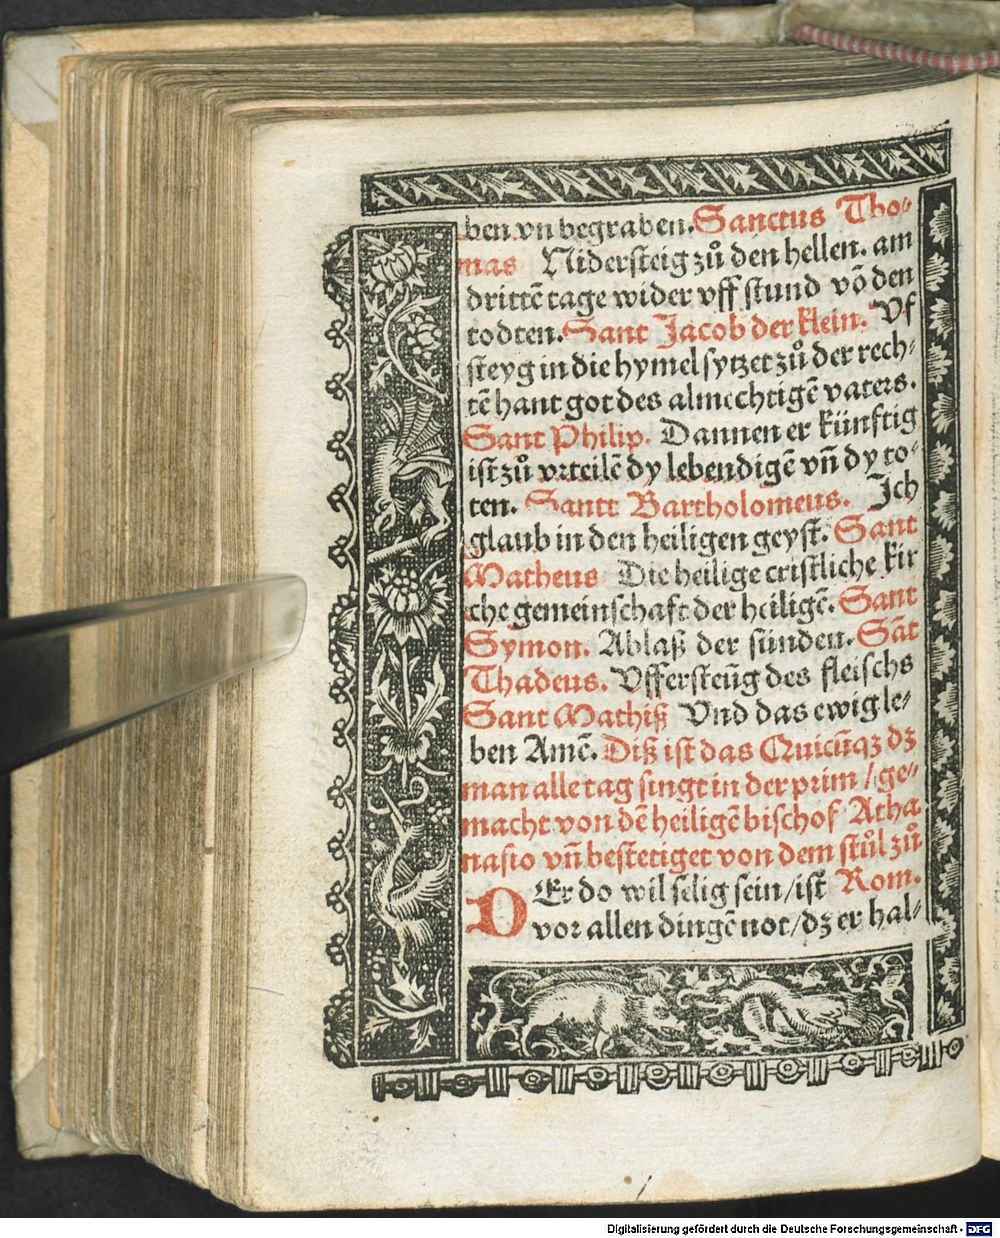 ben vn begraben. Sanctus Tho-
mas Nidersteig zuͦ den hellen. am
drittē tage wider vff stund vō den
todten. Sant Jacob der klein. Vf
steyg in die hymel sytzet zuͦ der rech-
tē hant got des almechtigē vaters.
Sant Philip. Dannen er künftig
ist zuͦ vrteilē dy lebendigē vn̄ dy to-
ten. Santt Bartholomeus. Ich
glaub in den heiligen geyst. Sant
Matheus Die heilige cristliche kir
che gemeinschaft der heiligē. Sant
Symon. Ablaß der sünden. Sāt
Thadeus. Vffersteūg des fleischs
Sant Mathiß Vnd das ewig le-
ben Amē. Diß ist das Quicūqꝫ dꝫ
man alle tag singt in der prim / ge-
macht von dē heiligē bischof Atha
nasio vn̄ bestetiget von dem stuͦl zuͦ
DEr do wil selig sein / ist Rom.
vor allen dingē not / dꝫ er hal-
Digitalisierung gefördert durch die Deutsche Forschungsgemeinschaft - DFG